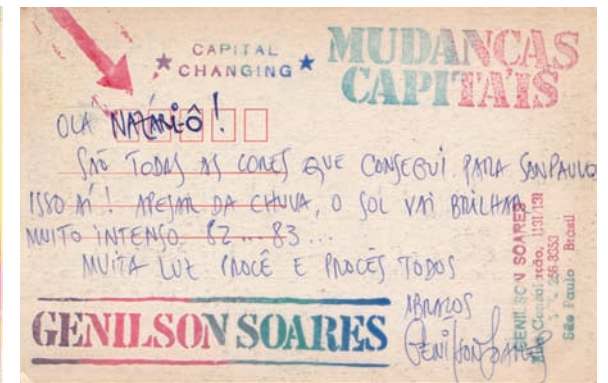 CAPITAL
★ CHANGING ★
MUDANÇAS
CAPITAIS
OLÁ NATARIÔ!
SÃO TODAS AS CORES QUE CONSEGUI PARA SANPAULO
ISSO AÍ! APESAR DA CHUVA, O SOL VAI BRILHAR
MUITO INTENSO. 82... 83...
MUITA LUZ PROCÊ E PROCÊS TODOS
ABRAÇOS
Genilson Soares
GENILSON SOARES
GENILSON SOARES
1131/131
256-8353
São Paulo Brasil